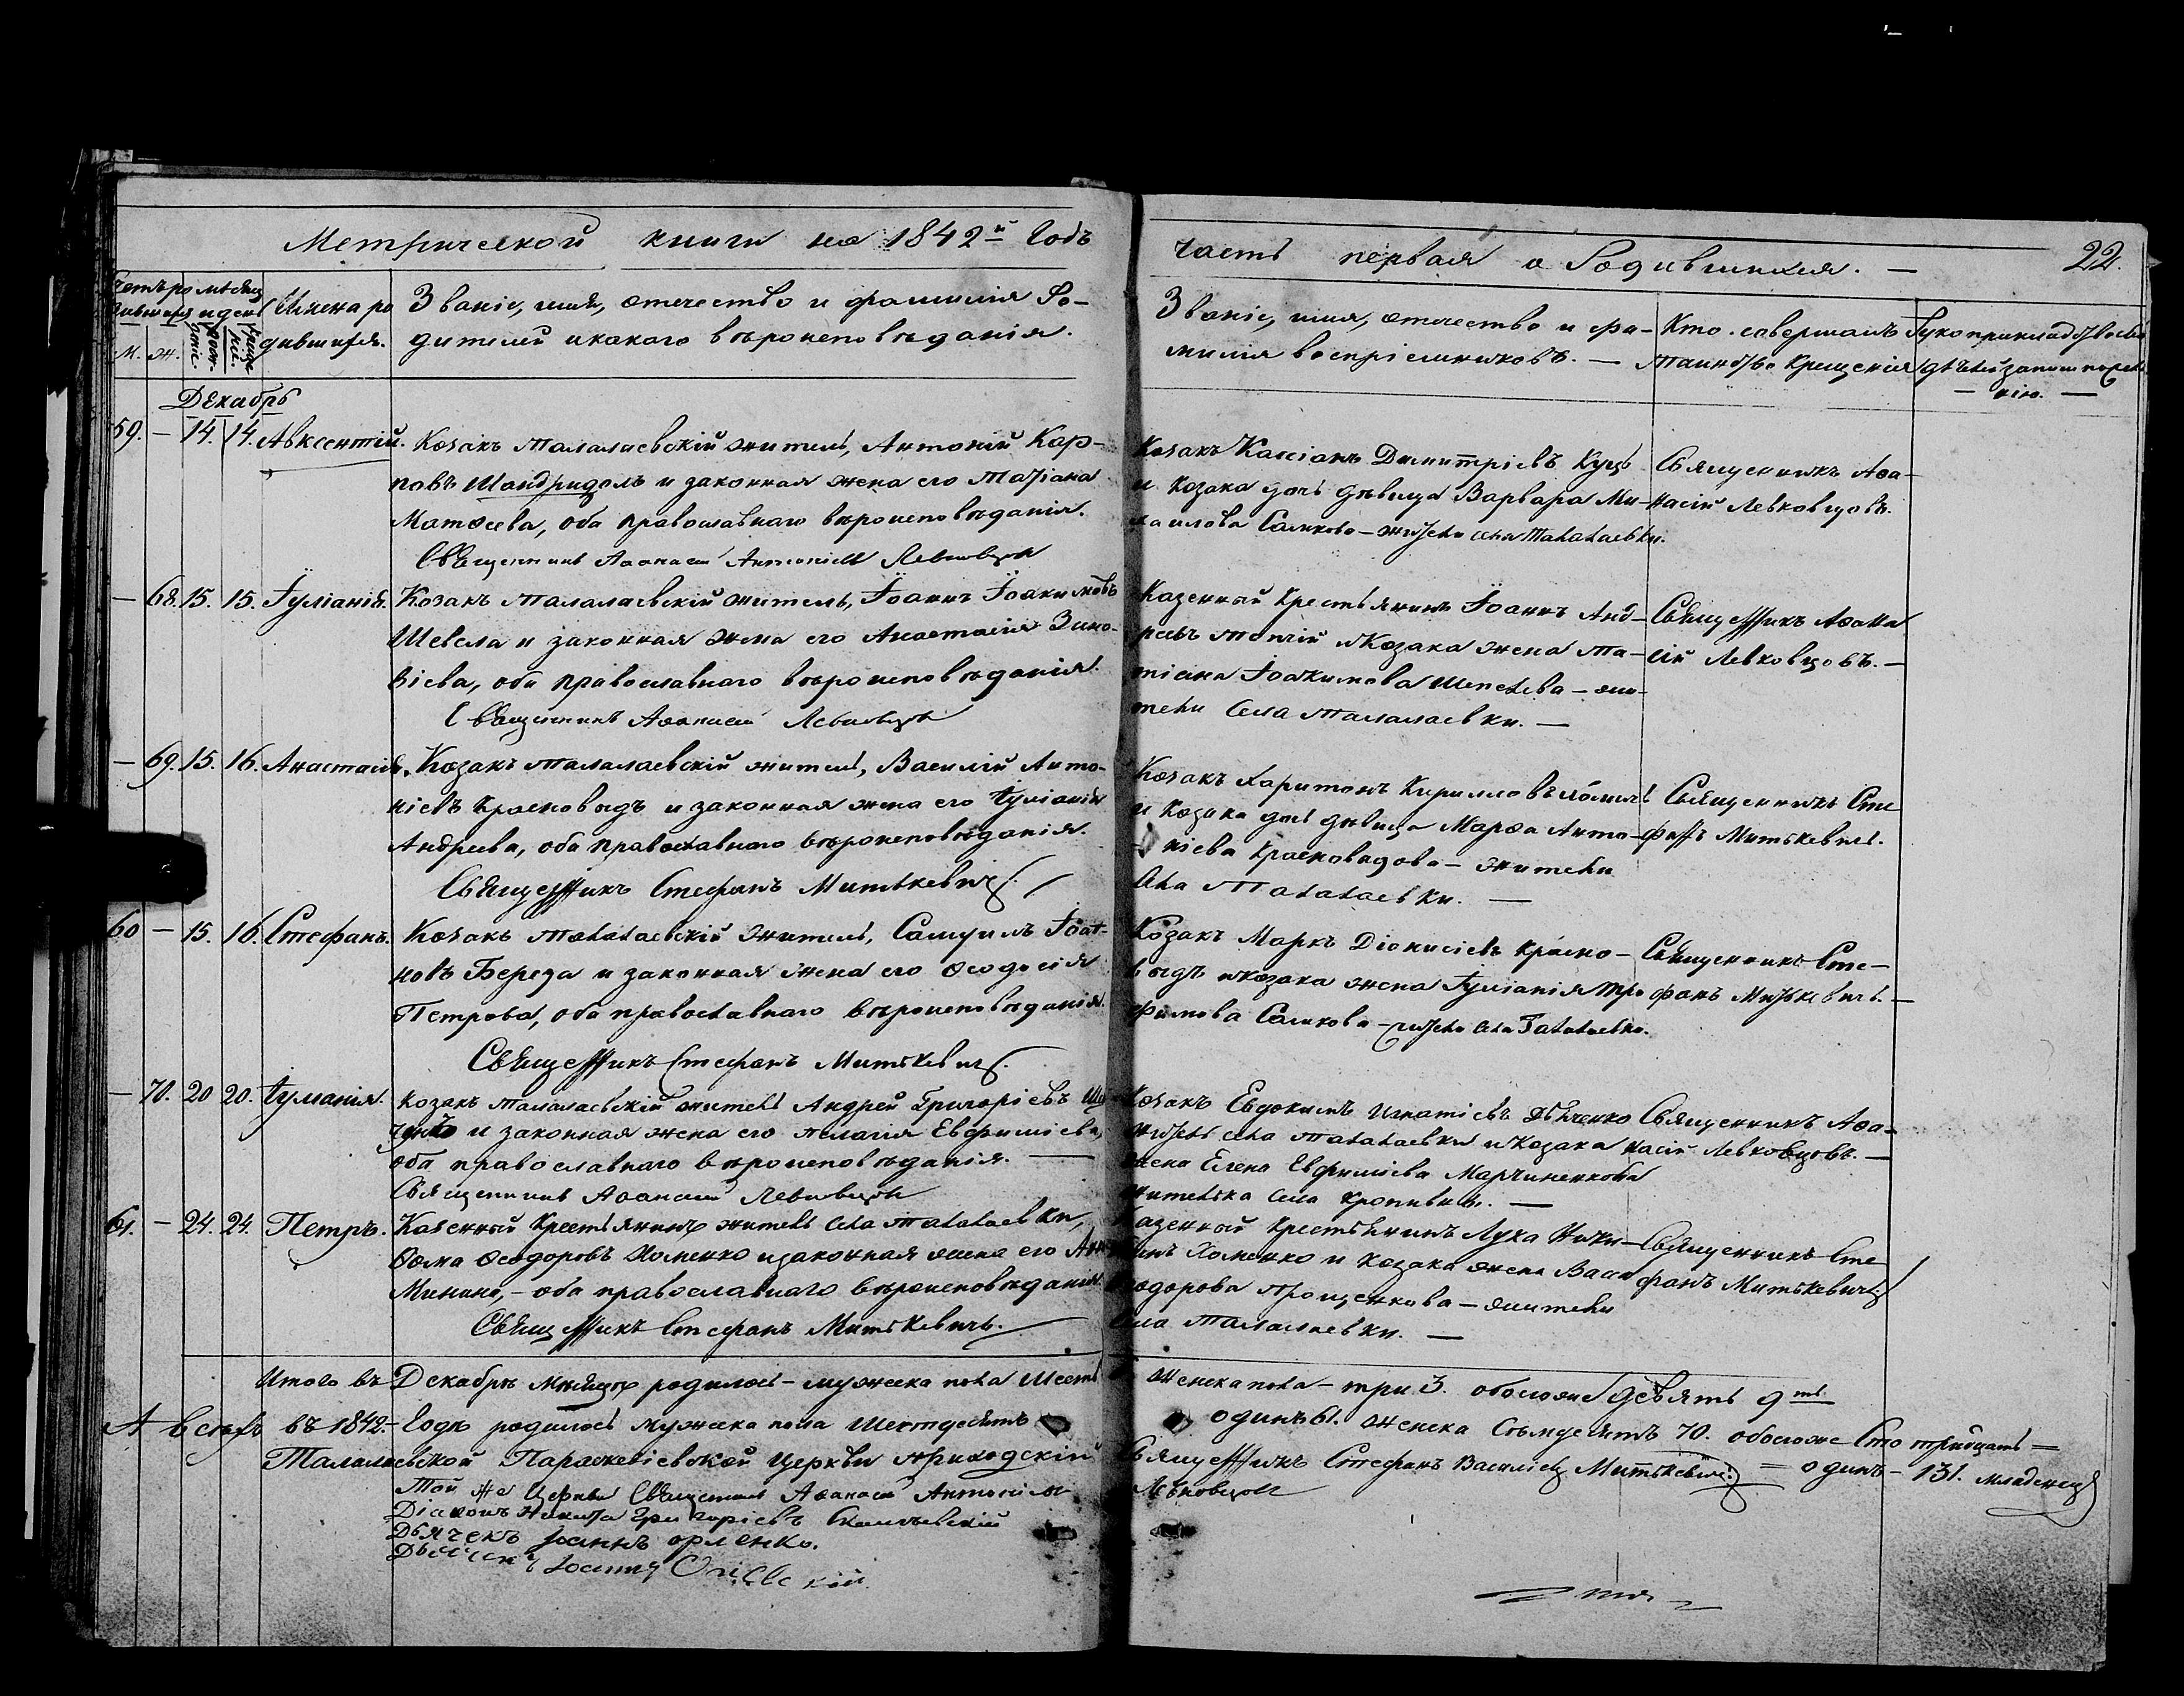 Метрической книги на 1842й Годъ
часть первая о Родившихся. — 22.
Счетъ ро
дившихся
М. Ж.
месяц
и день
рождение
крещение
Имена ро
дившихся.
Званіе, имя, отчество и фамилія Ро-
дителей и какого вѣроисповѣданія.
Званіе, имя, отчество и фа-
милія воспріемниковъ. —
Кто совершалъ
таинство Крещенія
Рукоприкладство сви
дѣтелей записи по жела
— нію. —
Декабрь
59. — 14. 14. Авксентій. Козакъ Талалаевскій житель, Антоній Кар-
повъ Шандридолъ и законная жена его Татіана
Матѳеева, оба православнаго вѣроисповѣданія.
Священникъ Аѳанасій Антоніевъ Левковцовъ
Козакъ Кассіанъ Димитріевъ Куцъ
и козака дочь дѣвица Варвара Ми-
хаилова Саликова — жители села Талалаевки.
Священникъ Аѳа-
насій Левковцовъ.
— 68. 15. 15. Іуліанія. Козакъ Талалаевскій житель, Іоаннъ Іоакимовъ
Шевела и законная жена его Анастасія Зино-
віева, оба православнаго вѣроисповѣданія.
Священникъ Аѳанасій Левковцовъ
Казенный Крестьянинъ Іоаннъ Анд-
реевъ и Козака жена Та-
тіана Іоакимова Шепелева — жи-
тели села Талалаевки. —
Священникъ Аѳана
сій Левковцовъ. —
— 69. 15. 16. Анастасія. Козакъ Талалаевскій житель, Василій Анто-
ніевъ Красновыдъ и законная жена его Іуліанія
Андреева, оба православнаго вѣроисповѣданія.
Священникъ Стефанъ Митькевичъ.
Козакъ Харитонъ Кирилловъ
и Козака дочь дѣвица Марѳа Анто-
ніева Красновыдова — жители
села Талалаевки. —
Священникъ Сте
фанъ Митькевичъ.
60 — 15. 16. Стефанъ. Козакъ Талалаевскій житель, Самуилъ Іоан-
новъ Береза и законная жена его Ѳеодосія
Петрова, оба православнаго вѣроисповѣданія.
Священникъ Стефанъ Митькевичъ.
Козакъ Маркъ Діонисіевъ Красно-
выдъ и козака жена Іуліанія Тро
фимова Саликова — жители села Талалаевки.
Священникъ Сте-
фанъ Митькевичъ. —
— 70. 20 20. Іуліанія. Козакъ Талалаевскій житель Андрей Григоріевъ
и законная жена его Пелагія Евфиміева,
оба православнаго вѣроисповѣданія. —
Священникъ Аѳанасій Левковцовъ
Козакъ Евдокимъ Игнатіевъ Дьяченко
житель села Талалаевки и Козака
жена Елена Евфиміева Марчиненкова
жителька села Кропивны. —
Священникъ Аѳа-
насій Левковцовъ. —
61. — 24. 24. Петръ. Казенный Крестьянинъ житель села Талалаевки,
Ѳома Ѳеодоровъ Хоменко и законная жена его Анна
Минина, — оба православнаго вѣроисповѣданія.
Священникъ Стефанъ Митькевичъ.
Казенный Крестьянинъ Лука Ники-
Хоменко и козака жена Васи
Ѳеодорова Прощенкова — жители
села Талалаевки. —
Священникъ Сте
фанъ Митькевичъ
Итого въ Декабрѣ мѣсяцѣ родилось — мужеска пола Шесть
женска пола — три 3. обоего же девять 9ть
А всего въ 1842. — Годѣ родилось мужеска пола Шестдесятъ
одинъ 61. женска Семдесятъ 70. обоего же Сто тридцать =
Талалаевской Параскевіевской Церкви Приходскій
Священникъ Стефанъ Василіевъ Митькевичъ = одинъ — 131. младенецъ
Той же Церкви Священникъ Аѳанасій Антоніевъ
Левковцовъ
Діаконъ Никита Григоріевъ
Дьячекъ Іоаннъ Орленко.
Іоаннъ